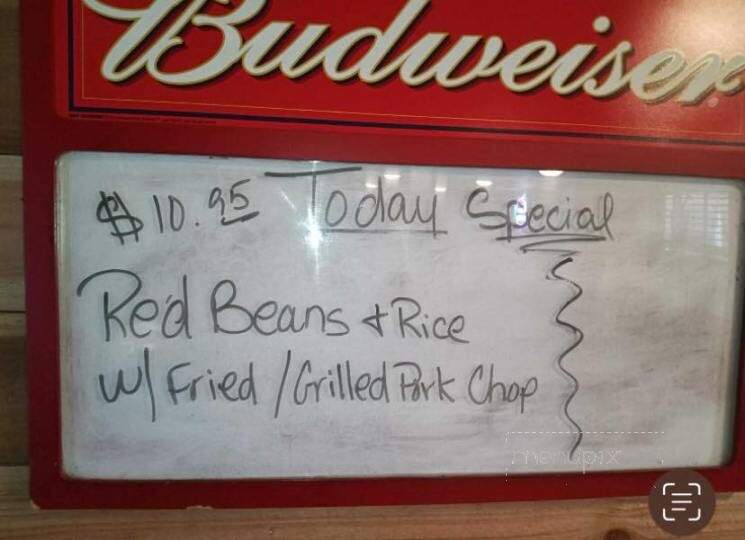 Budweiser
$10.95 Today Special
Red Beans & Rice
w/ Fried / Grilled Pork Chop
menupix